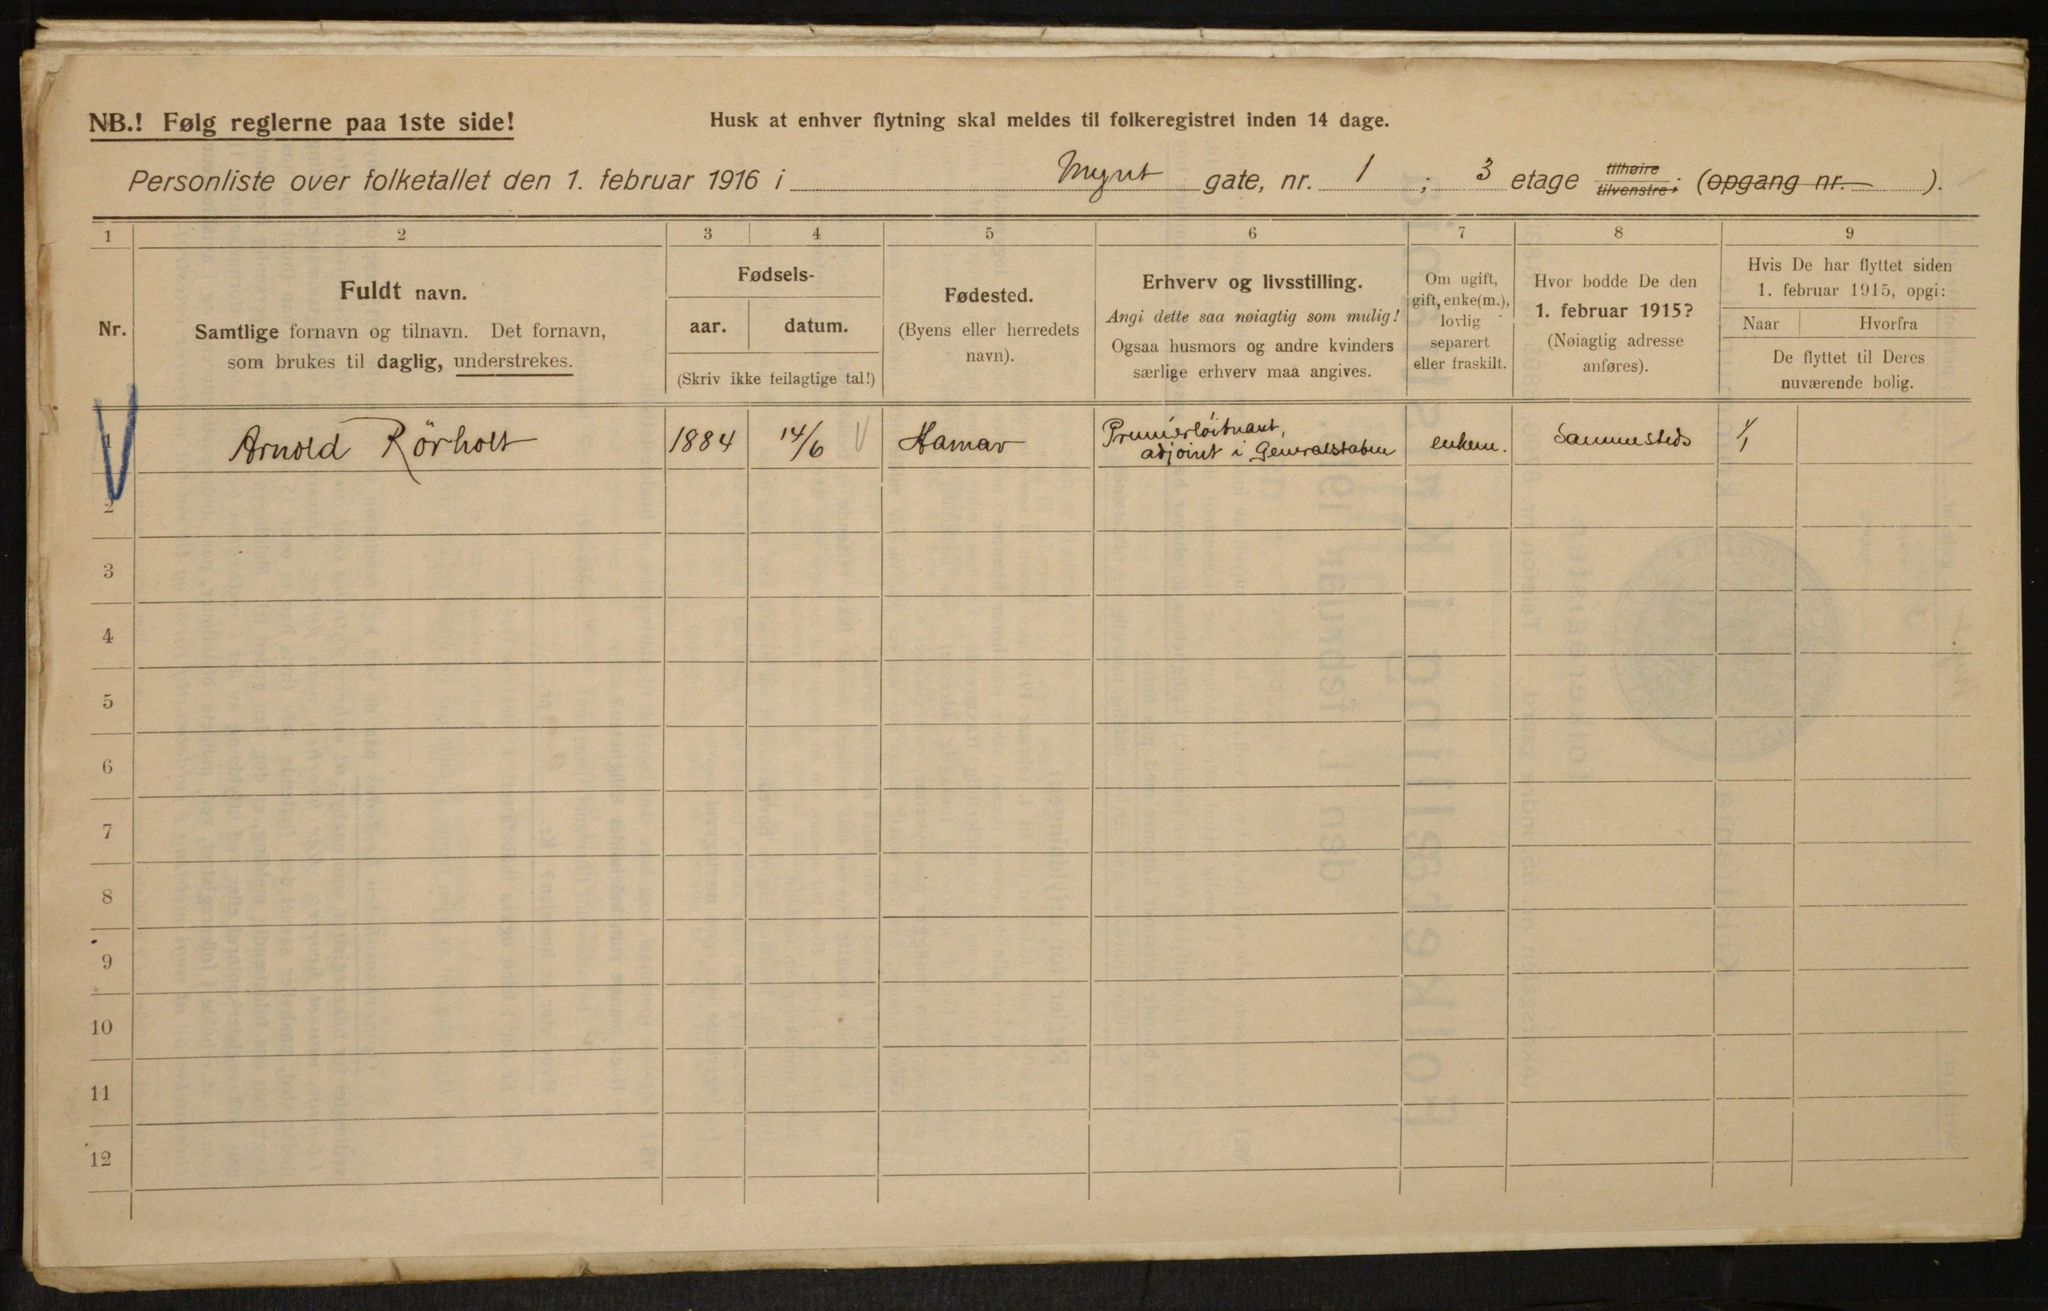 NB.! Følg reglerne paa 1ste side!
Husk at enhver flytning skal meldes til folkeregistret inden 14 dage.
Personliste over folketallet den 1. februar 1916 i Mynt gate, nr. 1 ; 3 etage tilhøire tilvenstre; (opgang nr. ).
1 2 3 4 5 6 7 8 9
Nr.
Fuldt navn.
Samtlige fornavn og tilnavn. Det fornavn,
som brukes til daglig, understrekes.
Fødsels-
aar. datum.
(Skriv ikke feilagtige tal!)
Fødested.
(Byens eller herredets
navn).
Erhverv og livsstilling.
Angi dette saa nøiagtig som mulig!
Ogsaa husmors og andre kvinders
særlige erhverv maa angives.
Om ugift,
gift, enke(m.),
lovlig
separert
eller fraskilt.
Hvor bodde De den
1. februar 1915?
(Nøiagtig adresse
anføres).
Hvis De har flyttet siden
1. februar 1915, opgi:
Naar Hvorfra
De flyttet til Deres
nuværende bolig.
1 Arnold Rörholt 1884 14/6 Hamar Premierløitnant, adjoint i Generalstaben enkem. Sammesteds 1/1
2
3
4
5
6
7
8
9
10
11
12